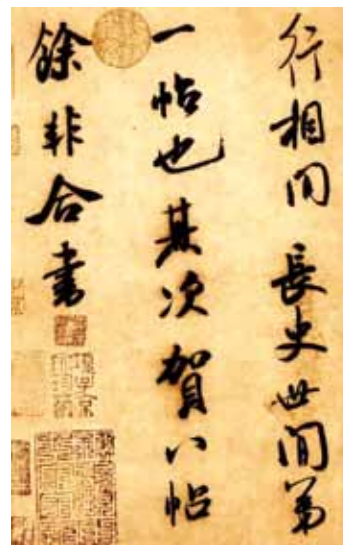 行相间長史世間第
一帖也其次賀八帖
餘非合書